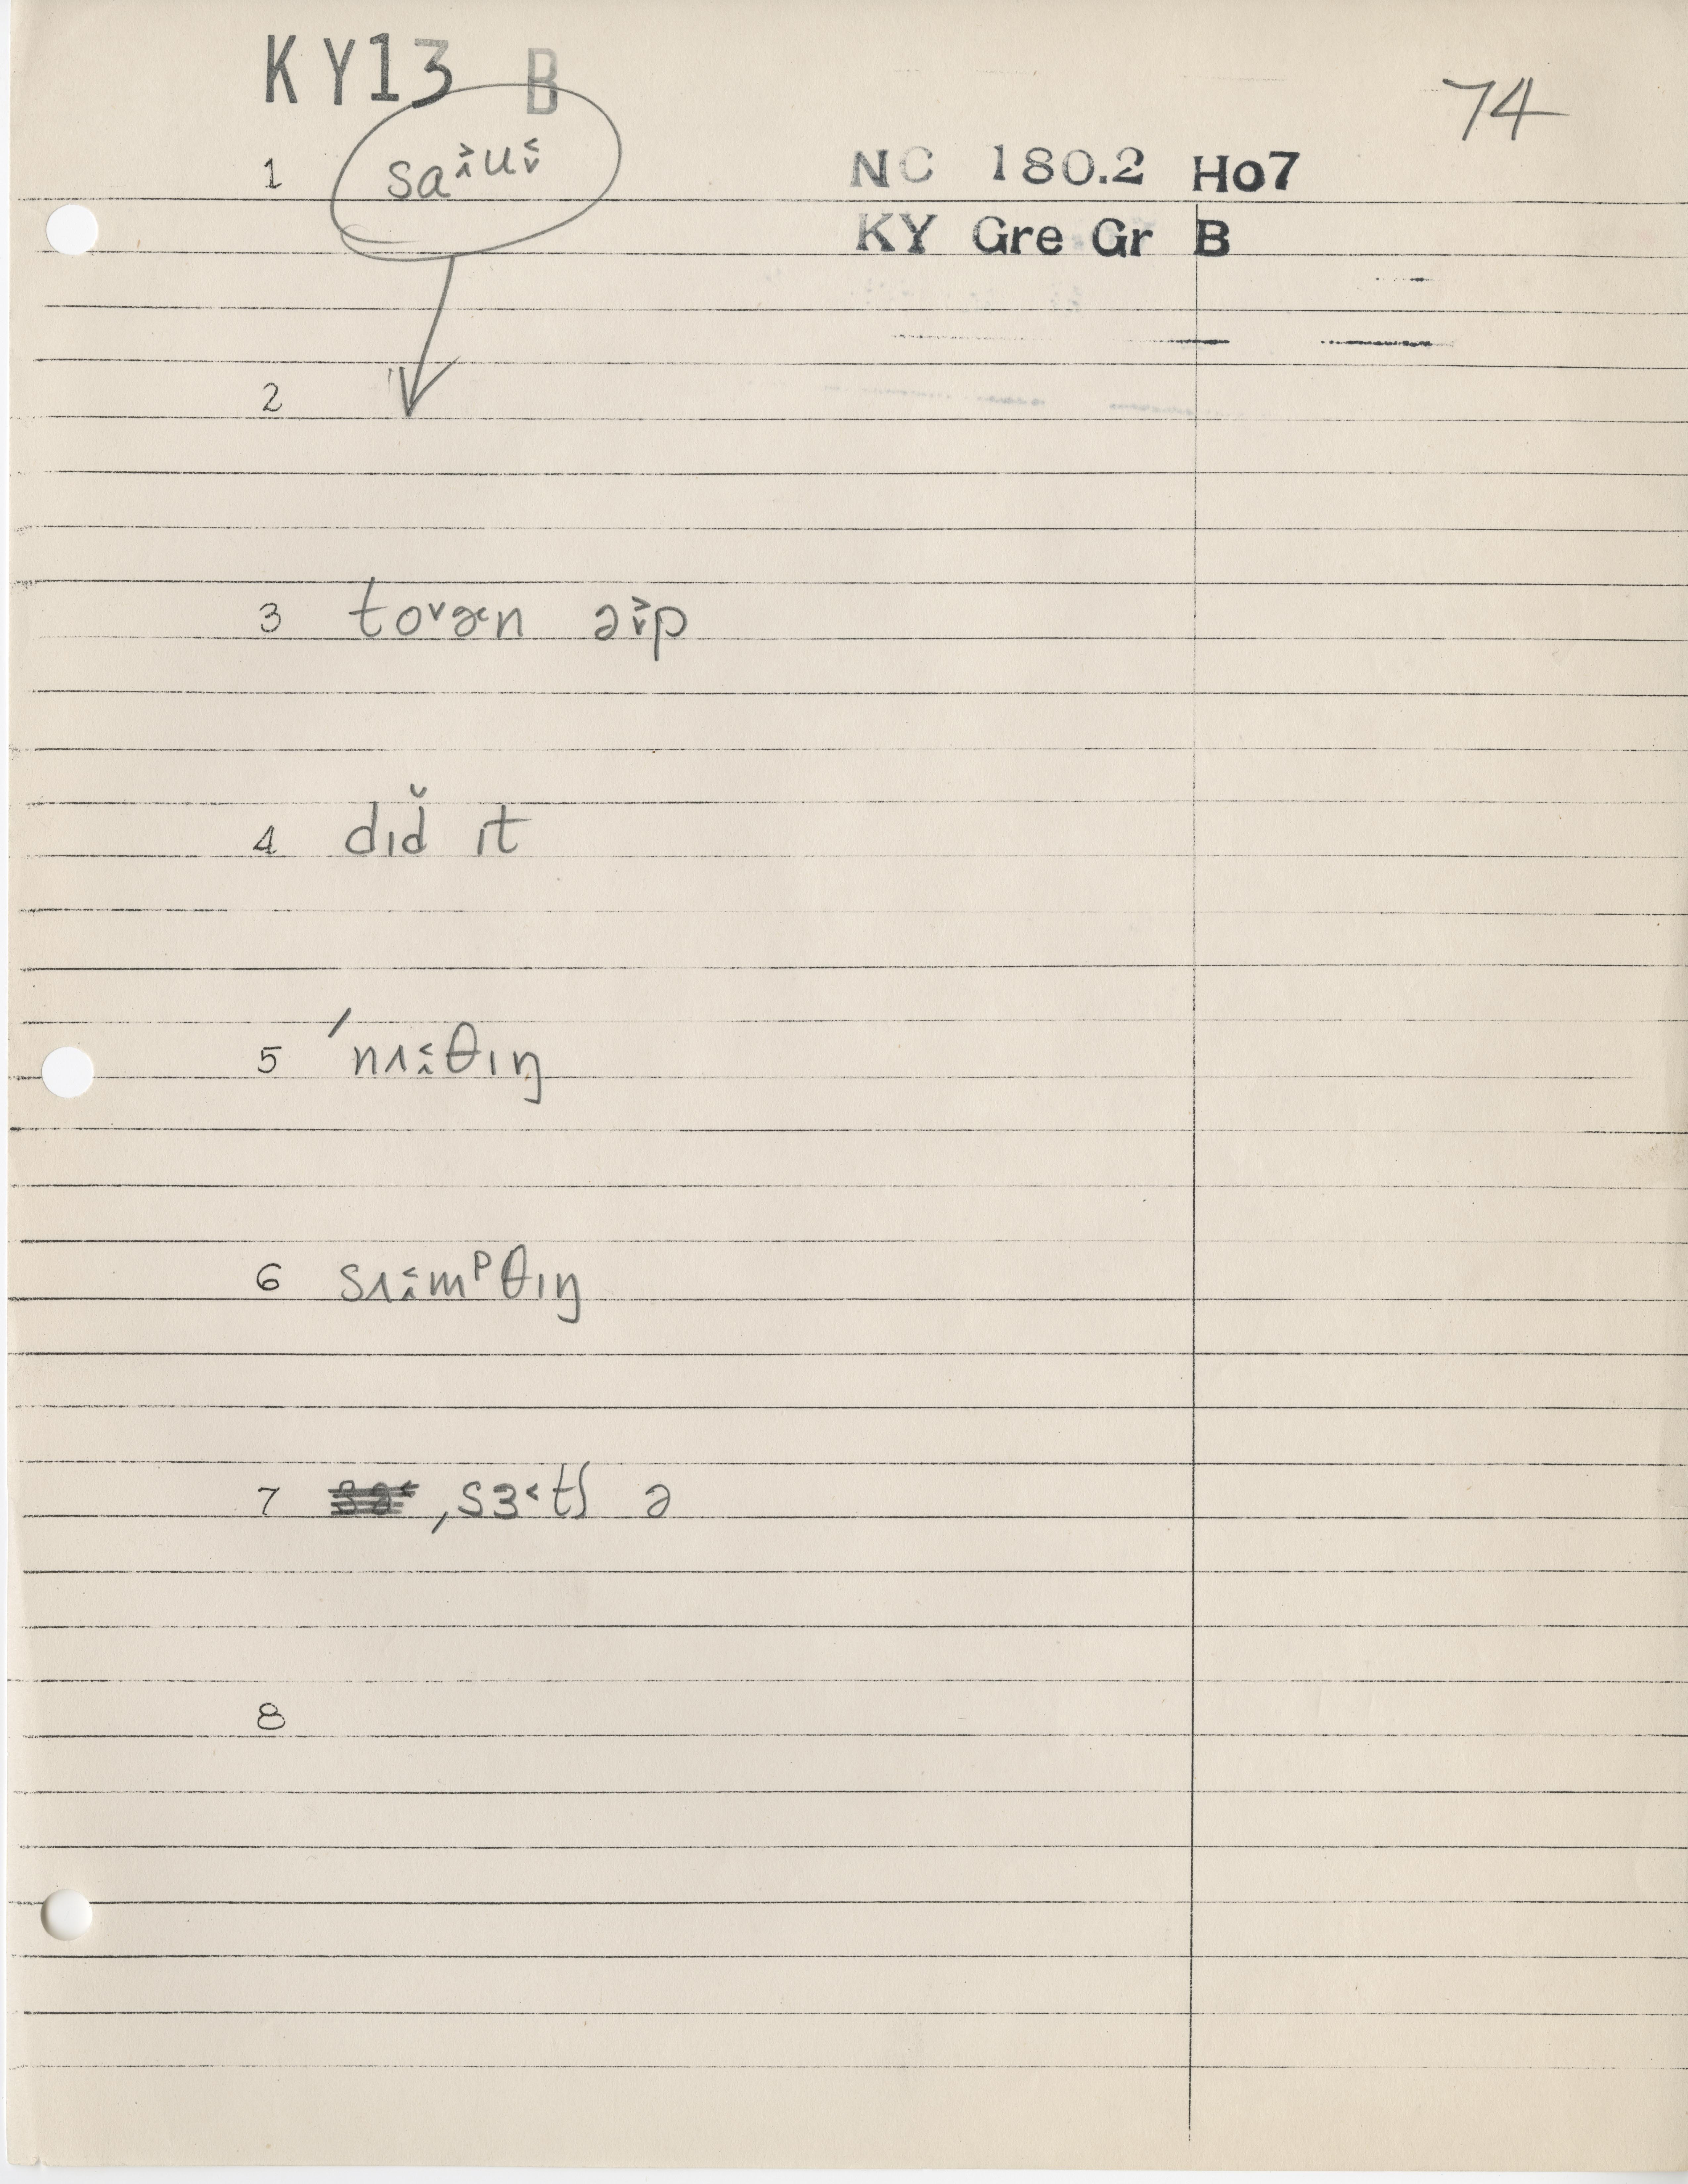 KY13 B
74
1 saɪ̂˃ʊ̌˂
NC 180.2 Ho7
KY Gre Gr B
2
3 to˅ə˞n əɪ̌˃p
4 dɪd̆ ɪt
5 ˈnʌ˂̭θɪŋ
6 sʌ˂̭mᵖθɪŋ
7 ˌsɜ˂tʃ ə
8